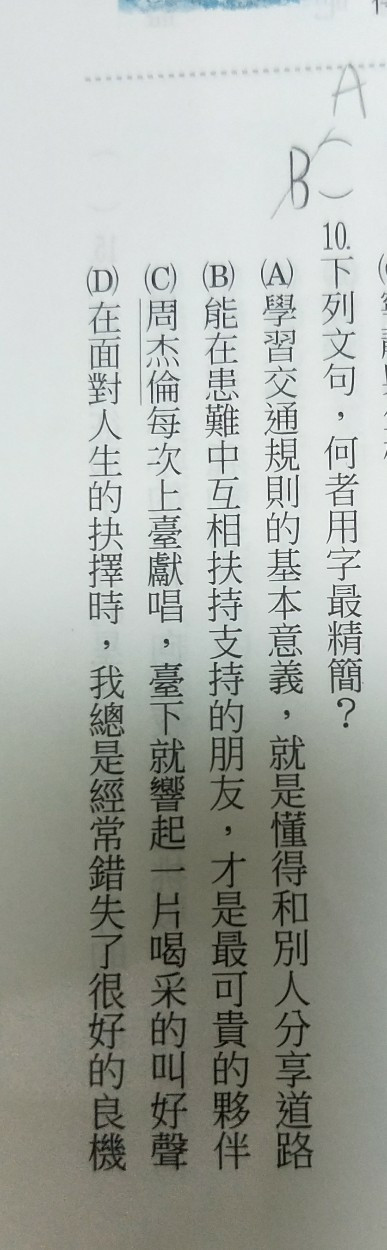 A
B
( )10.下列文句，何者用字最精簡？
(A)學習交通規則的基本意義，就是懂得和別人分享道路
(B)能在患難中互相扶持支持的朋友，才是最可貴的夥伴
(C)周杰倫每次上臺獻唱，臺下就響起一片喝采的叫好聲
(D)在面對人生的抉擇時，我總是經常錯失了很好的良機